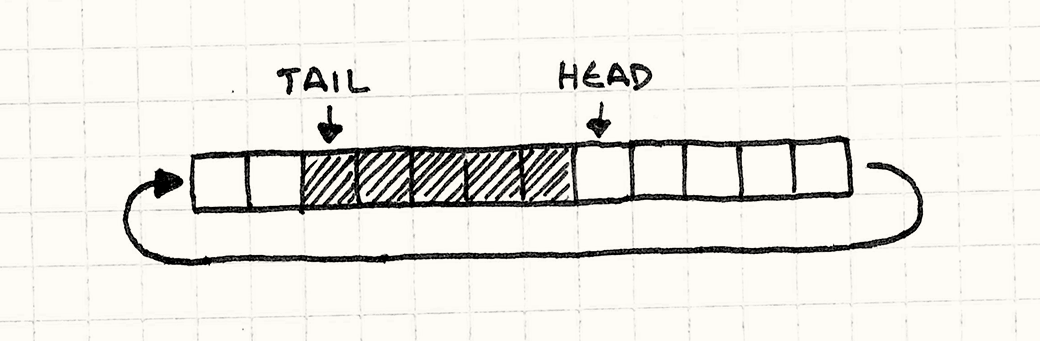 TAIL HEAD